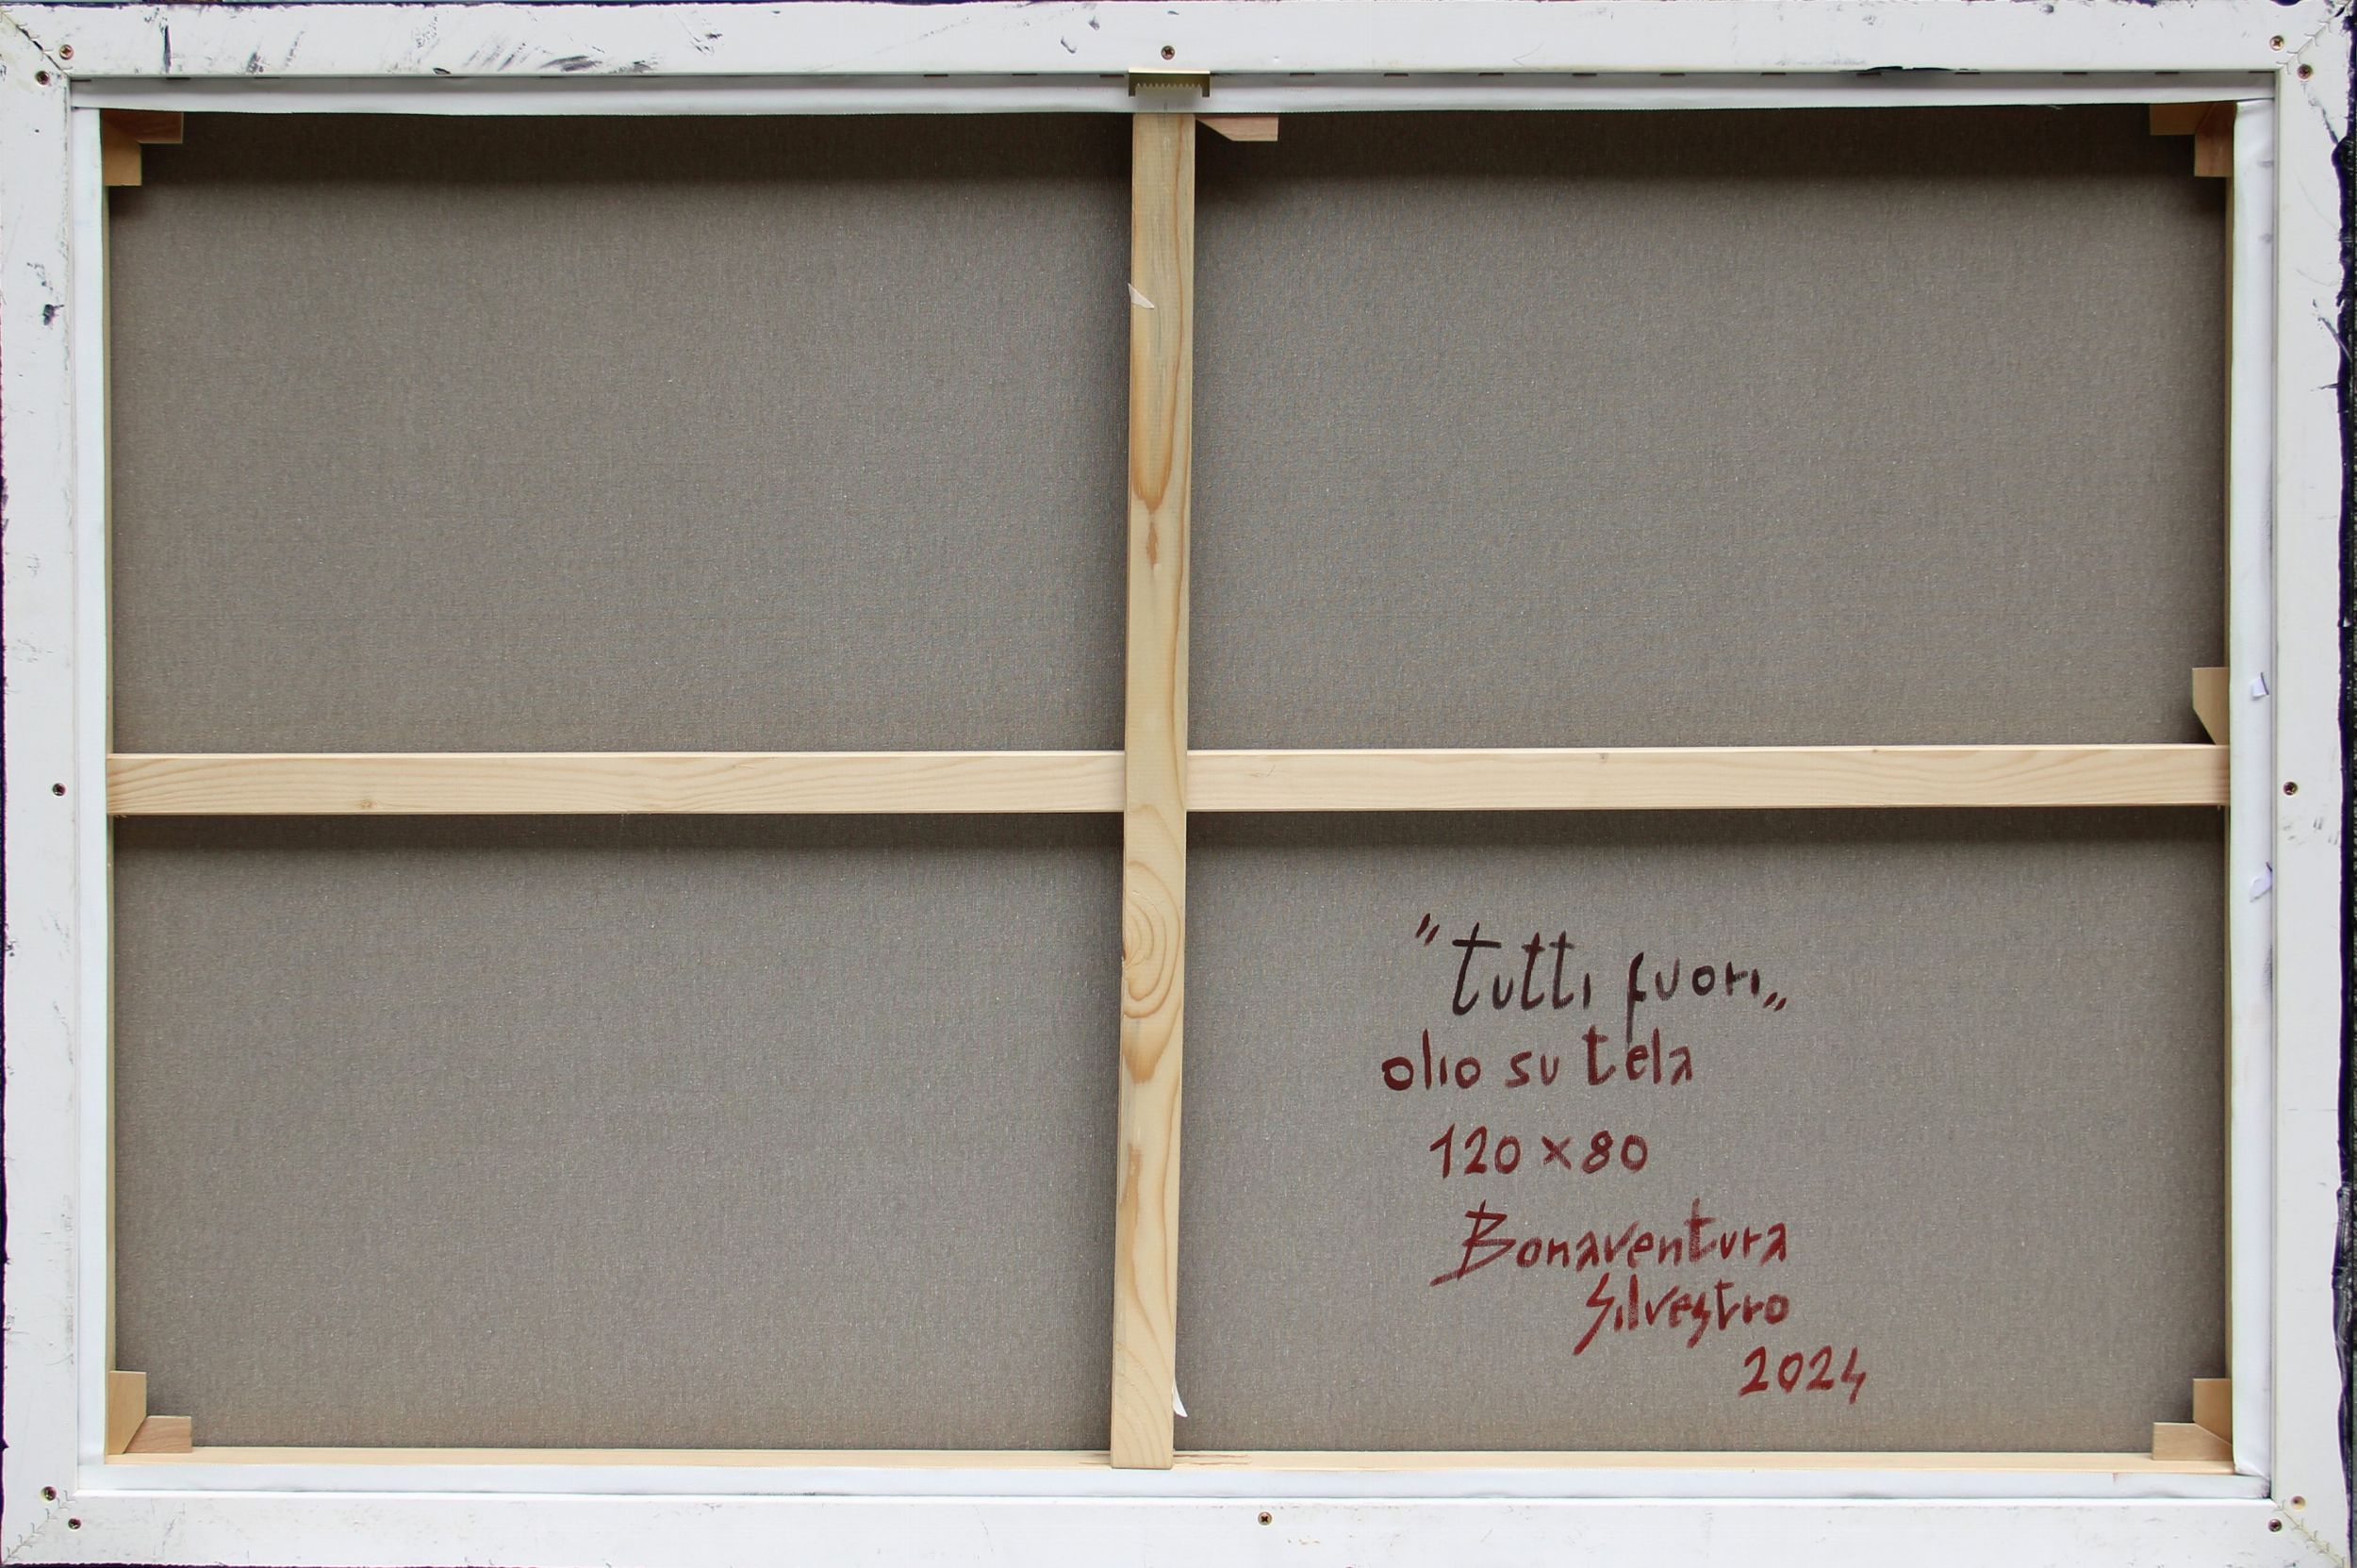 "tutti fuori„
olio su tela
120 x 80
Bonaventura
Silvestro
2024